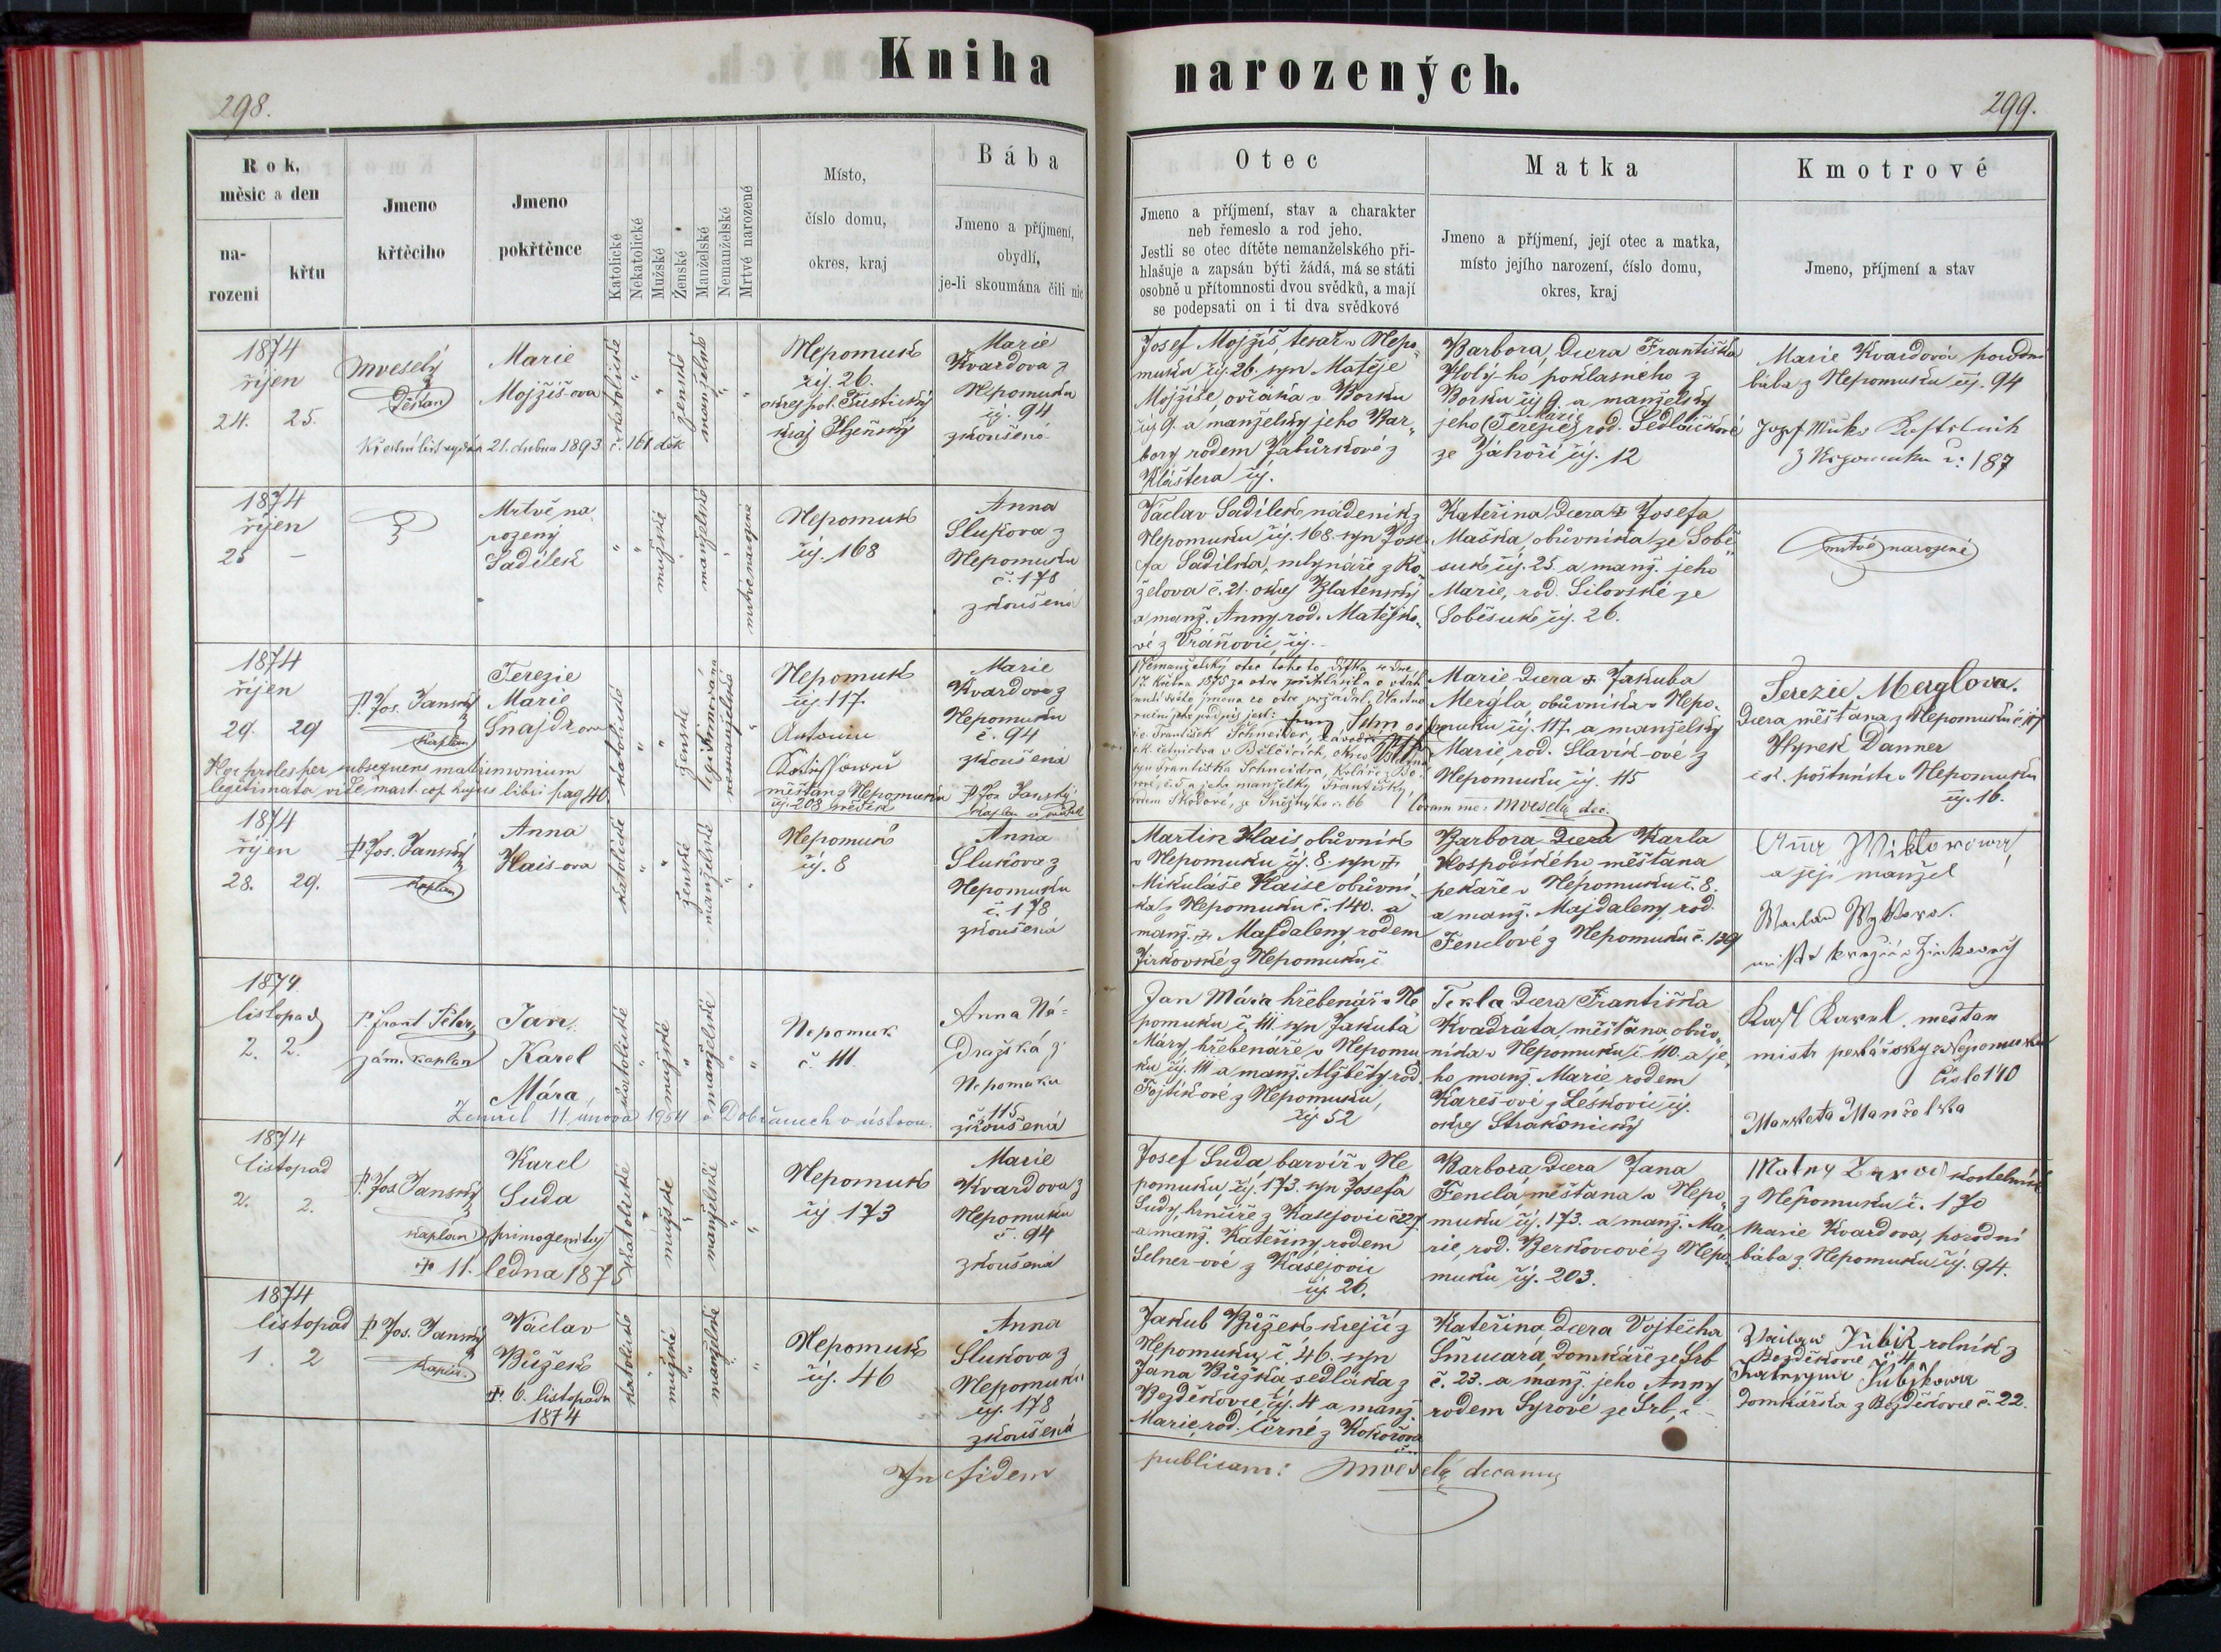 Kniha
narozených.
298.
299.
Rok,
měsíc a den
na-
rozeni
křtu
Jmeno
křtěcího
Jmeno
pokřtěnce
Katolické
Nekatolické
Mužské
Ženské
Manželské
Nemanželské
Mrtvé narozené
Místo,
číslo domu,
okres, kraj
Bába
Jmeno a příjmení,
obydlí,
je-li skoumána čili nic
Otec
Jmeno a příjmení, stav a charakter
neb řemeslo a rod jeho.
Jestli se otec dítěte nemanželského při-
hlašuje a zapsán býti žádá, má se státi
osobně u přítomnosti dvou svědků, a mají
se podepsati on i ti dva svědkové
Matka
Jmeno a příjmení, její otec a matka,
místo jejího narození, číslo domu,
okres, kraj
Kmotrové
Jmeno, příjmení a stav
1874
říjen
24. 25.
MVeselý
Děkan
Marie
Mojžíš-ova
Křestní list vydán 21. dubna 1893 č. 161 děk
katolické
ženské
manželské
Nepomuk
čij. 26.
okres pol.
kraj Plzeňský
Marie
Kvardova z
Nepomuku
čij. 94
zkoušená
Josef Mojžíš, tesař v Nepo-
muku čij. 26. syn Matěje
Mojžíše, ovčáka v Borku
čij 9. a manželky jeho Bar-
bory rodem Jabůrkové z
Kláštera čij.
Barbora, Dcera Františka
Holý-ho poklasného z
Borku čij 9 a manželky
Marie
jeho (Terezie) rod. Sedláčkové
ze Záhoří čij. 12
Marie Kvardová porodní
bába z Nepomuku čij. 94
z Nepomuku č: 187
1874
říjen
25 –
Mrtvě na
rozený
Sadílek
mužské
manželské
mrtvě narozené
Nepomuk
čij. 168
Anna
Slukova z
Nepomuku
č. 178
zkoušená
Václav Sadílek nádeník z
Nepomuku čij. 168. syn Jose-
fa Sadílka, mlynáře z Ko-
zelova č. 21. okres Blatenský
a manž. Anny, rod. Matějko-
vé z Vráňovic, čij.
Kateřina Dcera ✝ Josefa
Maška obůvníka ze Sobě-
suk čij. 25. a manž. jeho
Marie, rod. Silovské ze
Soběsuk čij. 26.
mrtvě narozené
1874
říjen
29. 29
P. Jos. Janský
Kaplan
Terezie
Marie
Šnajdrova
Hæc proles per subsequens matrimonium
legitimata vide matr. cop. hujus libri pag 40.
katolické
ženské
legitimována
nemanželské
Nepomuk
čij. 117.
Antonín
měšťan z Nepomuku
čij. 208 svědek
Marie
Kvardova z
Nepomuku
č. 94
zkoušená
P. Jos. Janský
kaplan a svědek
Nemanželský otec tohoto dítka se dne
František Schneider, závodčí
c.k. četnictva v Bělčicích, okres Blatná
syn Františka Schneidra, Koláře z
a jeho manželky Františky,
Coram me: MVeselý dec.
Marie Dcera ✝ Jakuba
Mergla obůvníka v Nepo-
muku čij. 117. a manželky
Marie, rod. Slavík-ové z
Nepomuku čij. 115
Terezie Merglova.
Dcera měšťana z Nepomuku č. 117
Hynek Danner
v Nepomuku
čij. 16.
1874
říjen
28. 29.
P. Jos. Janský
Kaplan
Anna
Hais-ova
katolické
ženské
manželské
Nepomuk
čij. 8
Anna
Slukova z
Nepomuku
č. 178
zkoušená
Martin Hais obůvník
v Nepomuku čij. 8. syn ✝
Mikuláše Haise obůvní-
ka z Nepomuku č. 140. a
manž. ✝ Majdaleny rodem
Jirkovské z Nepomuku, č
Barbora Dcera Karla
Hospodského měšťana
pekaře v Nepomuku č. 8.
a manž. Majdaleny, rod.
Fenclové z Nepomuku č. 139
a její manžel
1874
listopad
2. 2.
P. Frant. Peter
zám. kaplan
Jan
Karel
Mára
Zemřel 11. února 1954 v Dobřanech v ústavu.
katolické
mužské
manželské
Nepomuk
č. 111.
Anna Ná-
dražská z
Nepomuku
č 115
zkoušená
Jan Mára hřebenář v Ne
pomuku č. 111. syn Jakuba
Máry, hřebenáře v Nepomu
ku čij. 111 a manž. Alžběty, rod.
Fojtíkové z Nepomuku,
čij 52
Tekla Dcera Františka
Kvadráta, měšťana obův-
níka v Nepomuku č. 110. a je-
ho manž. Marie rodem
Kareš-ové z Leskovic čij.
okres Strakonický
Karel, měšťan
mistr pekářský z Nepomuku
Číslo 140
Marketa
1874
listopad
2. 2.
P. Jos Janský
kaplan
Karel
Suda
primogenitus
✝ 11. ledna 1875
katolické
mužské
manželské
Nepomuk
čij 173
Marie
Kvardova z
Nepomuku
č. 94
zkoušená
Josef Suda, barvíř v Ne
pomuku čij. 173. syn Josefa
Sudy, hrnčíře z Kasejovic č 227
a manž. Kateřiny, rodem
Selner-ové z Kasejovic
čij. 26.
Barbora, Dcera Jana
Fencla, měšťana v Nepo-
muku čij. 173. a manž. Ma-
rie, rod. Berkovcové z Nepo-
muku čij. 203.
kostelník
z Nepomuku č. 170
Marie Kvardova, porodní
bába z Nepomuku čij. 94.
1874
listopad
1. 2
P. Jos. Janský
Kaplan.
Václav
Bůžek
✝. 6. listopadu
1874
katolické
mužské
manželské
Nepomuk
čij. 46
Anna
Slukova z
Nepomuku
čij. 178
zkoušená
Jakub Bůžek krejčí z
Nepomuku, č 46. syn
Jana Bůžka sedláka z
Bezděkovce čij. 4 a manž.
Marie, rod. Černé z Kokořova
Kateřina, Dcera Vojtěcha
Šmucara, Domkáře ze Srb
č. 23. a manž. jeho Anny
rodem Syrové ze Srb, č –
rolník z
Bezděkovce č. 4
Domkářka z Bezděkovce č. 22.
In fidem
publicam: MVeselý decanus